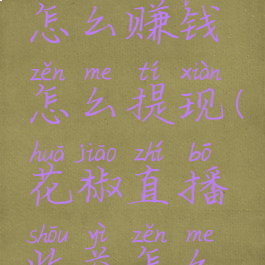 怎么赚钱
zěn me tí xiàn
怎么提现(
huā jiāo zhí bō
花椒直播
shōu yì zěn me